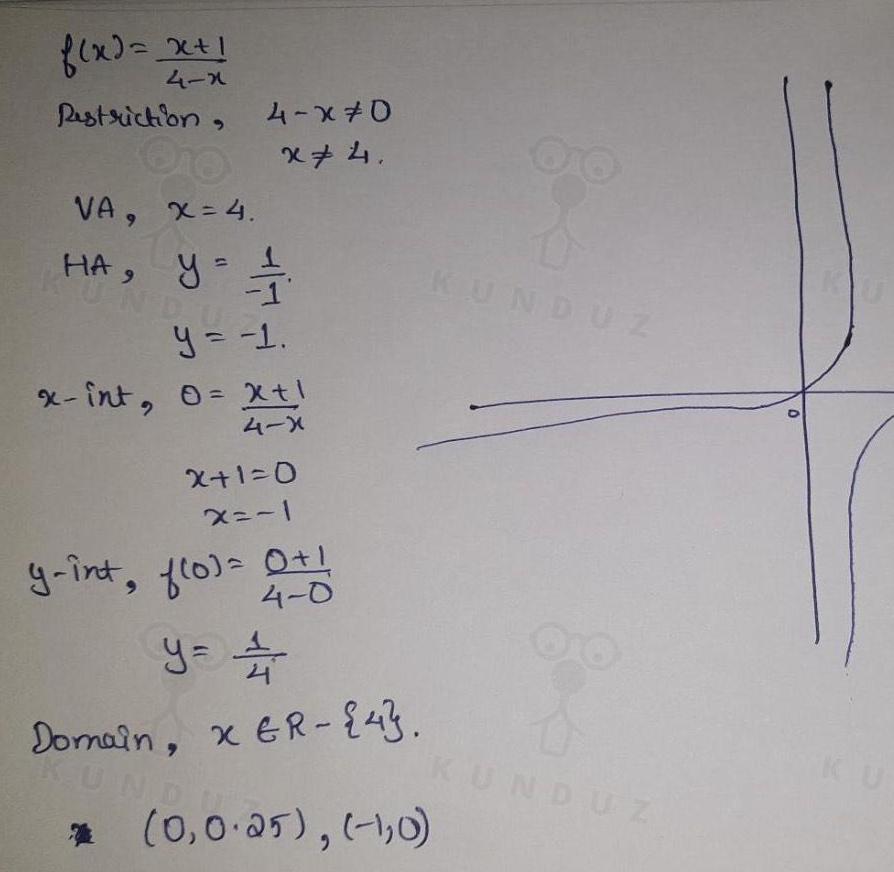 f(x) = x+1/4-x
Restriction, 4-x≠0
x≠4.
VA, x=4.
HA, y = 1/-1.
y = -1.
x-int, 0 = x+1/4-x
x+1=0
x=-1
y-int, f(0) = 0+1/4-0
y = 1/4
Domain, x ∈ R - {4}.
(0, 0.25), (-1, 0)
0
KUNDUZ
KUNDUZ
KU
KUNDUZ
KUNDUZ
KU